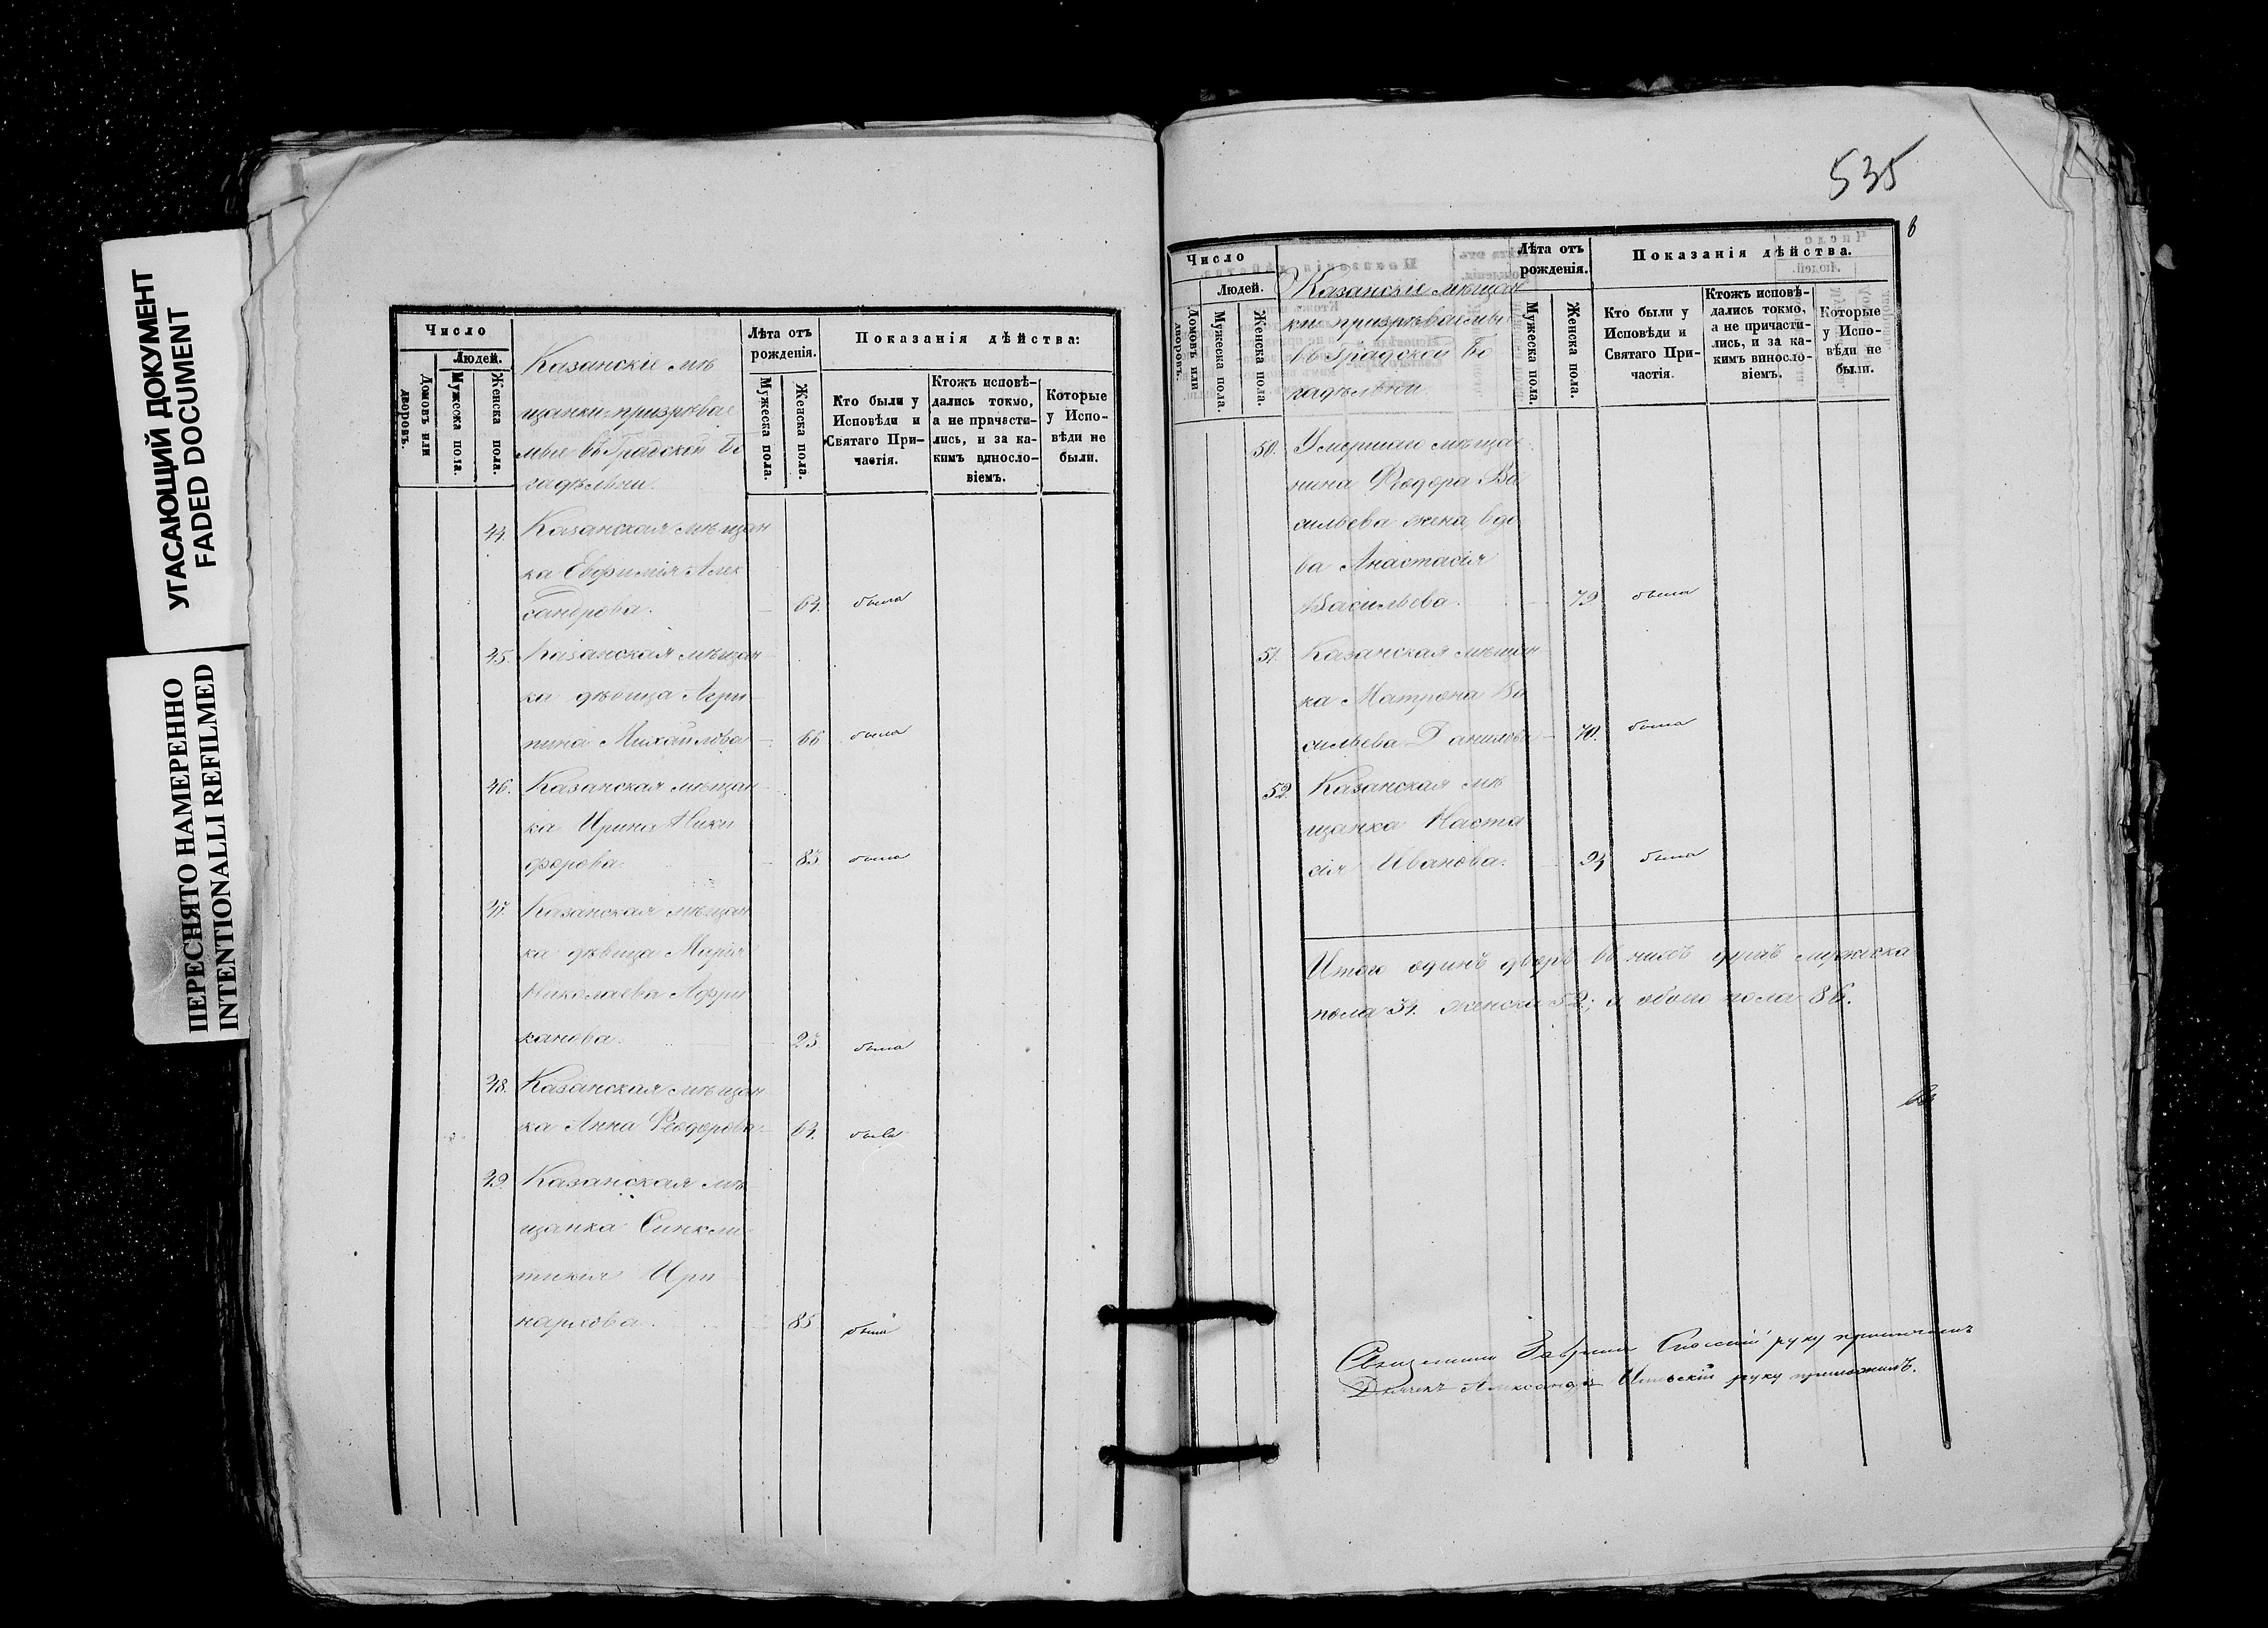 УГАСАЮЩИЙ ДОКУМЕНТ
FADED DOCUMENT
ПЕРЕСНЯТО НАМЕРЕННО
INTENTIONALLI REFILMED
Число
Людей.
Домовъ или дворовъ.
Мужеска пола.
Женска пола.
Казанскіе мѣ
щанки призрѣвае
мые въ Градской Бо
гадѣльни.
Лѣта отъ
рожденія.
Мужеска пола.
Женска пола.
Показанія дѣйства:
Кто были у
Исповѣди и
Святаго При-
частія.
Ктожъ исповѣ-
дались токмо,
а не причасти-
лись, и за ка-
кимъ виносло-
віемъ.
Которые
у Испо-
вѣди не
были.
44. Казанская мѣщан
ка Евфимія Алек
сандрова. 64. была
45. Казанская мѣщан
ка дѣвица Агри
пина Михайлова 66 была
46. Казанская мѣщан
ка Ирина Ники
форова. 83 была
47. Казанская мѣщан
ка дѣвица Марія
Николаева Афри
канова. 23 была
48. Казанская мѣщан
ка Анна Ѳеодорова 64. была
49. Казанская мѣ
щанка Синкли
тикія Ири
нархова. 85 была
535
Число
Людей.
Домовъ или дворовъ.
Мужеска пола.
Женска пола.
Казанскіе мѣщан
ки призрѣваемые
въ Градской Бо
гадѣльни.
Лѣта отъ
рожденія.
Мужеска пола.
Женска пола.
Показанія дѣйства.
Кто были у
Исповѣди и
Святаго При-
частія.
Ктожъ исповѣ-
дались токмо,
а не причасти-
лись, и за ка-
кимъ виносло-
віемъ.
Которые
у Испо-
вѣди не
были.
50. Умершаго мѣща
нина Ѳеодора Ва
сильева жена вдо
ва Анастасія
Васильева. 79 была
51. Казанская мѣщан
ка Матрона Ва
сильева Данилова 70. была
52. Казанская мѣ
щанка Наста
сія Иванова. 24 была
Итого одинъ дворъ въ нихъ душъ мужеска
пола 34. женска 52; и обоего пола 86.
Священникъ Гавріилъ Спасскій руку приложилъ
Дьячекъ Александръ руку приложилъ.